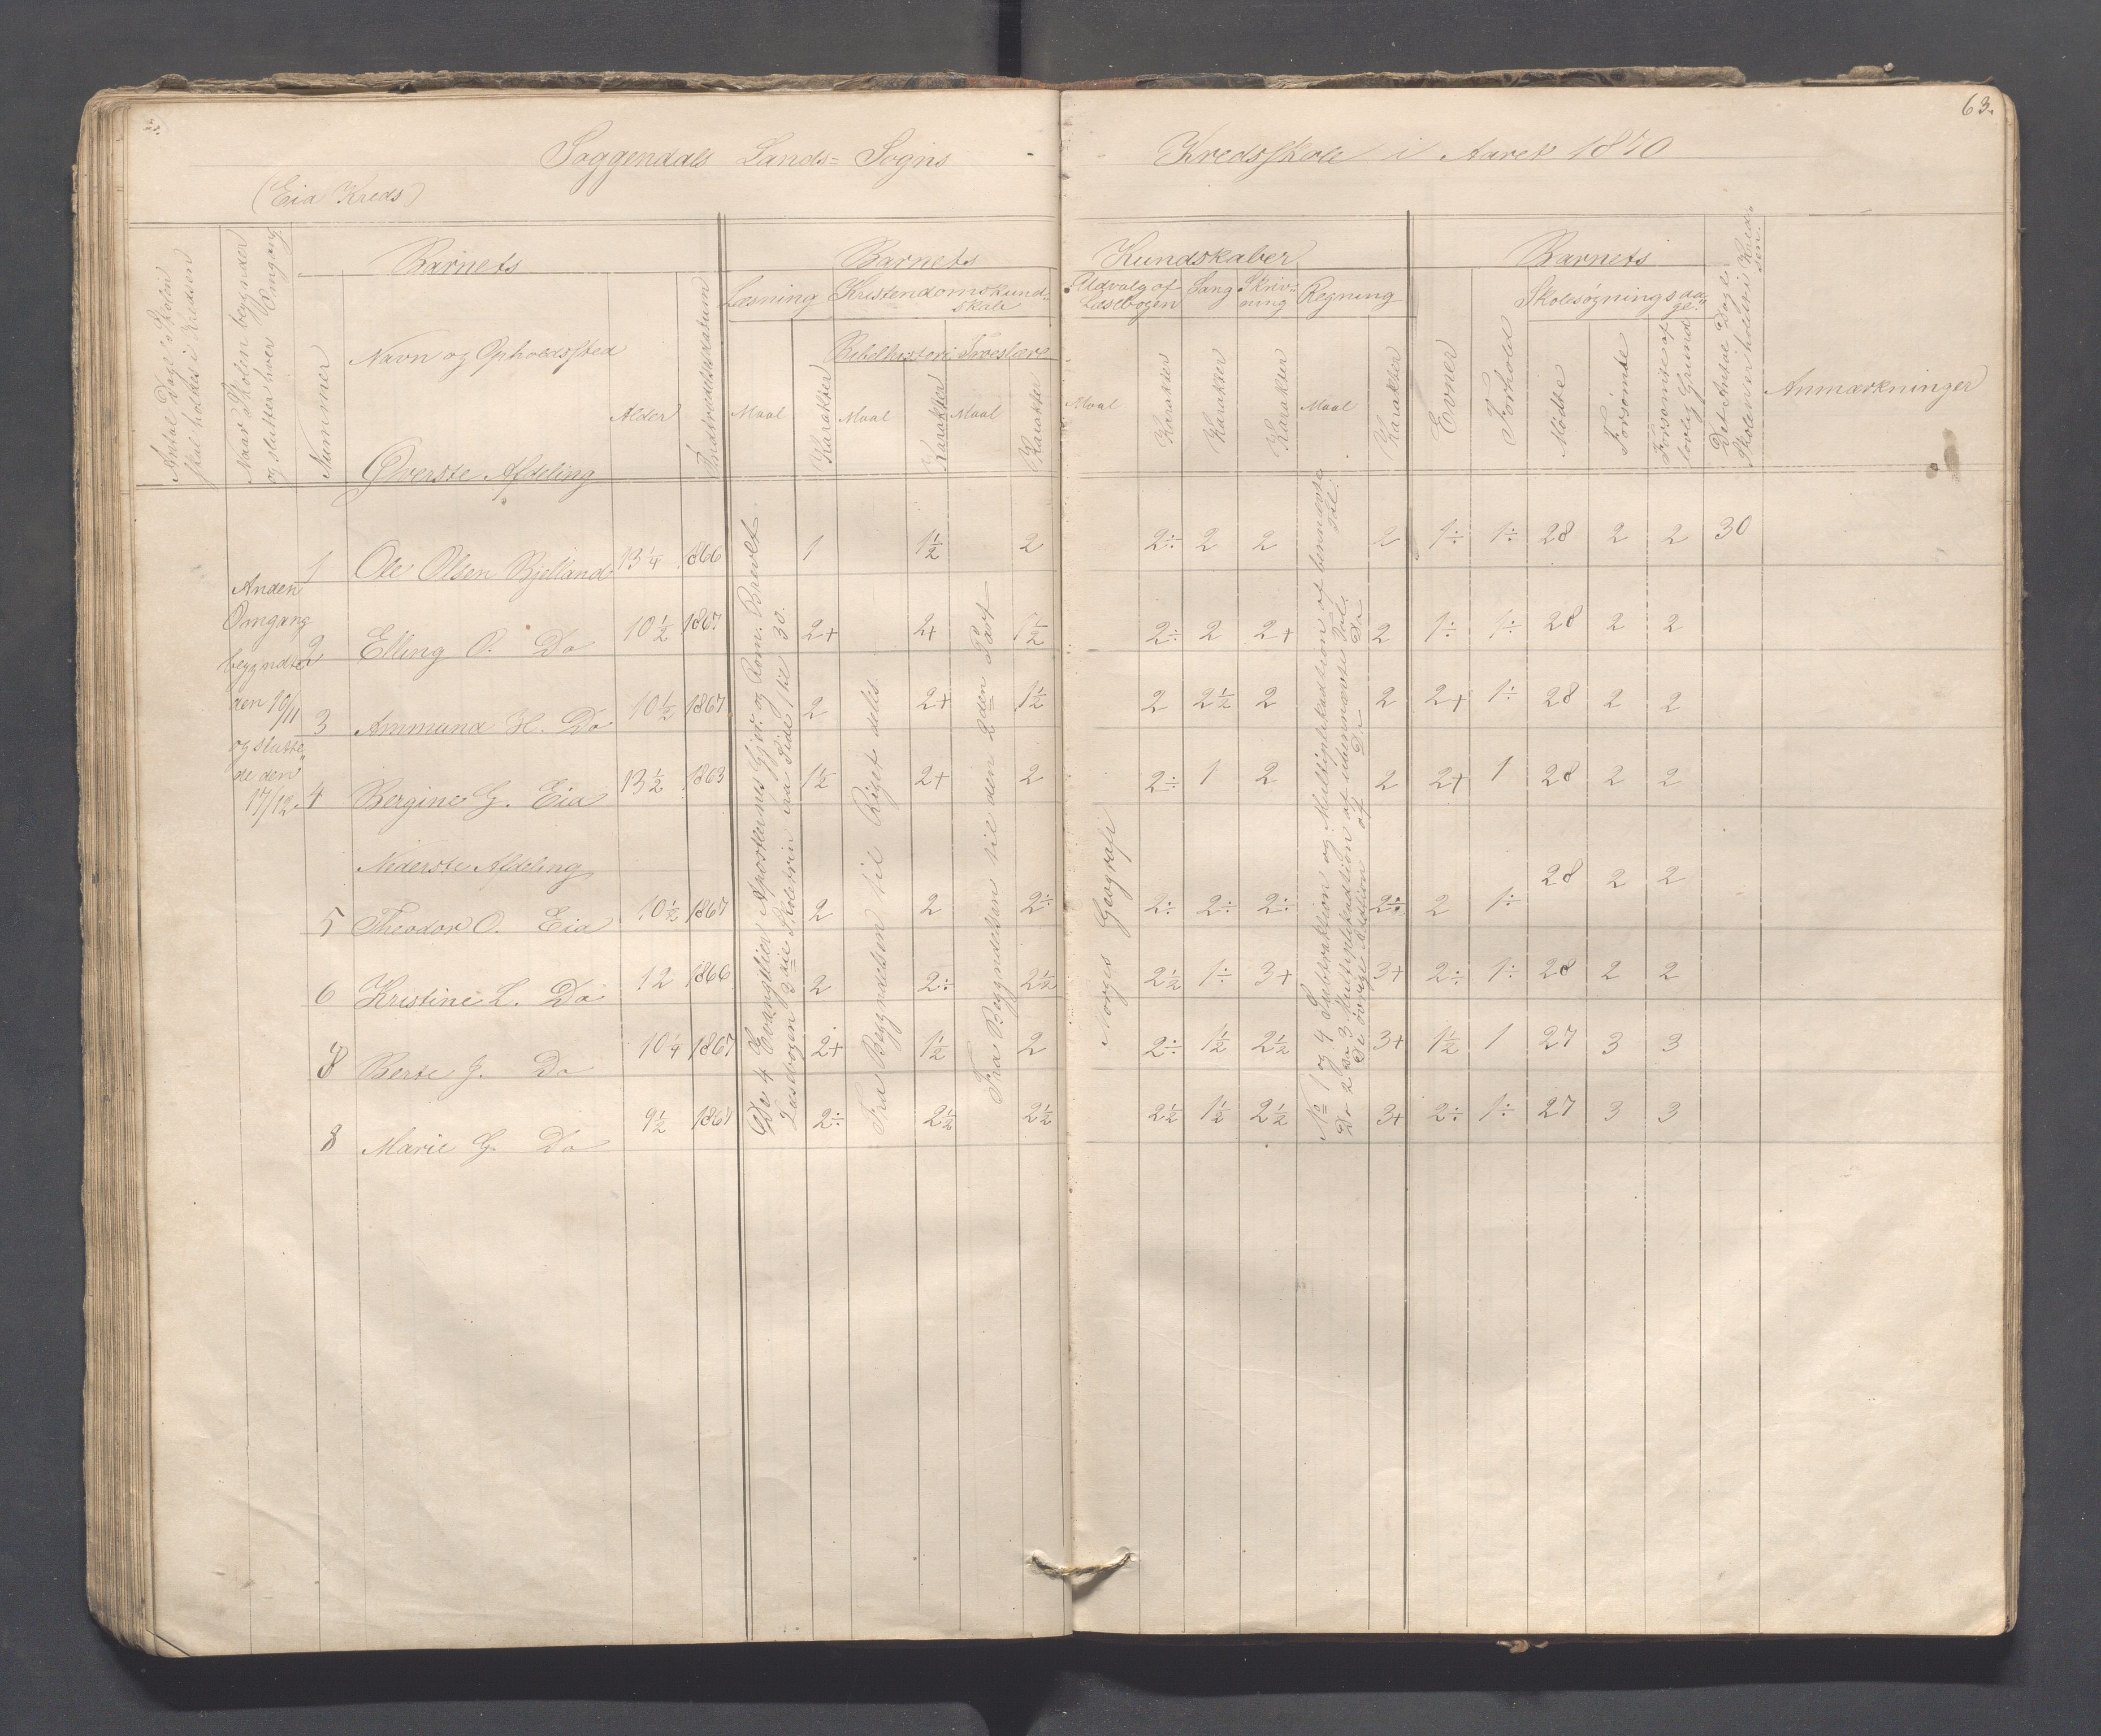 63.
Soggendals Lands= Sogns Kredsskole i Aaret 1870
(Eia Kreds)
Antal Dage Skolen skal holdes i Kredsen
Naar Skolen begynder og slutter hver Omgang
Nummer
Barnets
Navn og Opholdssted
Alder
Indtrædelsesdatum
Barnets Kundskaber
Læsning
Kristendomskund=
skab
Bibelhistorie Troeslære
Udvalg af Læsebogen
Sang
Skriv=
ning
Regning
Maal Karakter Maal Karakter Maal Karakter
Maal Karakter Karakter Karakter Maal Karakter
Evner
Forhold
Barnets
Skolesøgningsda=
ge
Mødte
Forsømte
Forsømte af lovlig Grund
Det Antal Dage Skolen er holdt i Kredsen
Anmærkninger
Øverste Afdeling
Anden
Omgang
begyndte
den 10/11
og slutte"
de den
17/12.
1 Ole Olsen Bjelland 13 1/4 1866 1 1 1/2 2 2÷ 2 2 2 1÷ 1÷ 28 2 2 30
2 Elling O. Do 10 1/2 1867 2+ 2+ 1 1/2 2÷ 2 2+ 2 1÷ 1÷ 28 2 2
3 Ammund H. Do 10 1/2 1867 2 2+ 1 1/2 2 2 1/2 2 2 2+ 1÷ 28 2 2
4 Bergine G. Eia 13 1/2 1863 1 1/2 2+ 2 2÷ 1 2 2 2+ 1 28 2 2
Nederste Afdeling
5 Theodor O. Eia 10 1/2 1867 2 2 2÷ 2÷ 2÷ 2÷ 2÷ 2 1÷ 28 2 2
6 Kristine L. Do 12 1866 2 2÷ 2 1/2 2 1/2 1÷ 3+ 3+ 2÷ 1÷ 28 2 2
8 Berte G. Do 10 1/4 1867 2+ 1 1/2 2 2÷ 1 1/2 2 1/2 3+ 1 1/2 1 27 3 3
8 Marie G. Do 9 1/2 1867 2÷ 2 1/2 2 1/2 2 1/2 1 1/2 2 1/2 3+ 2÷ 1÷ 27 3 3
De 4 Evangelier Apostlernes Gjer. og Rom. Brevet.
Læsebogen 3die Skoletrin fra Side 1 til 30.
Fra Begyndelsen til Riget deles.
Fra Begyndelsen til den 2den Part
Norges Geografi
No 1 og 4 Subtraktion og Multiplikadtion af benævnte Tal.
Do 2 Do 3 Multiplikadtion af ubenævnte Tal.
De øvrige Addtion af Do Do